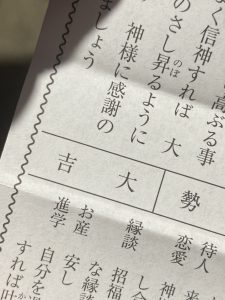 高ぶる事
なく信神すれば 大
のさし昇るように
のぼ
神様に感謝の
ましょう
勢
大吉
待人
恋愛
縁談
お産
進学
来
神
し合
招福
な縁談
安し
自分を
すれば叶